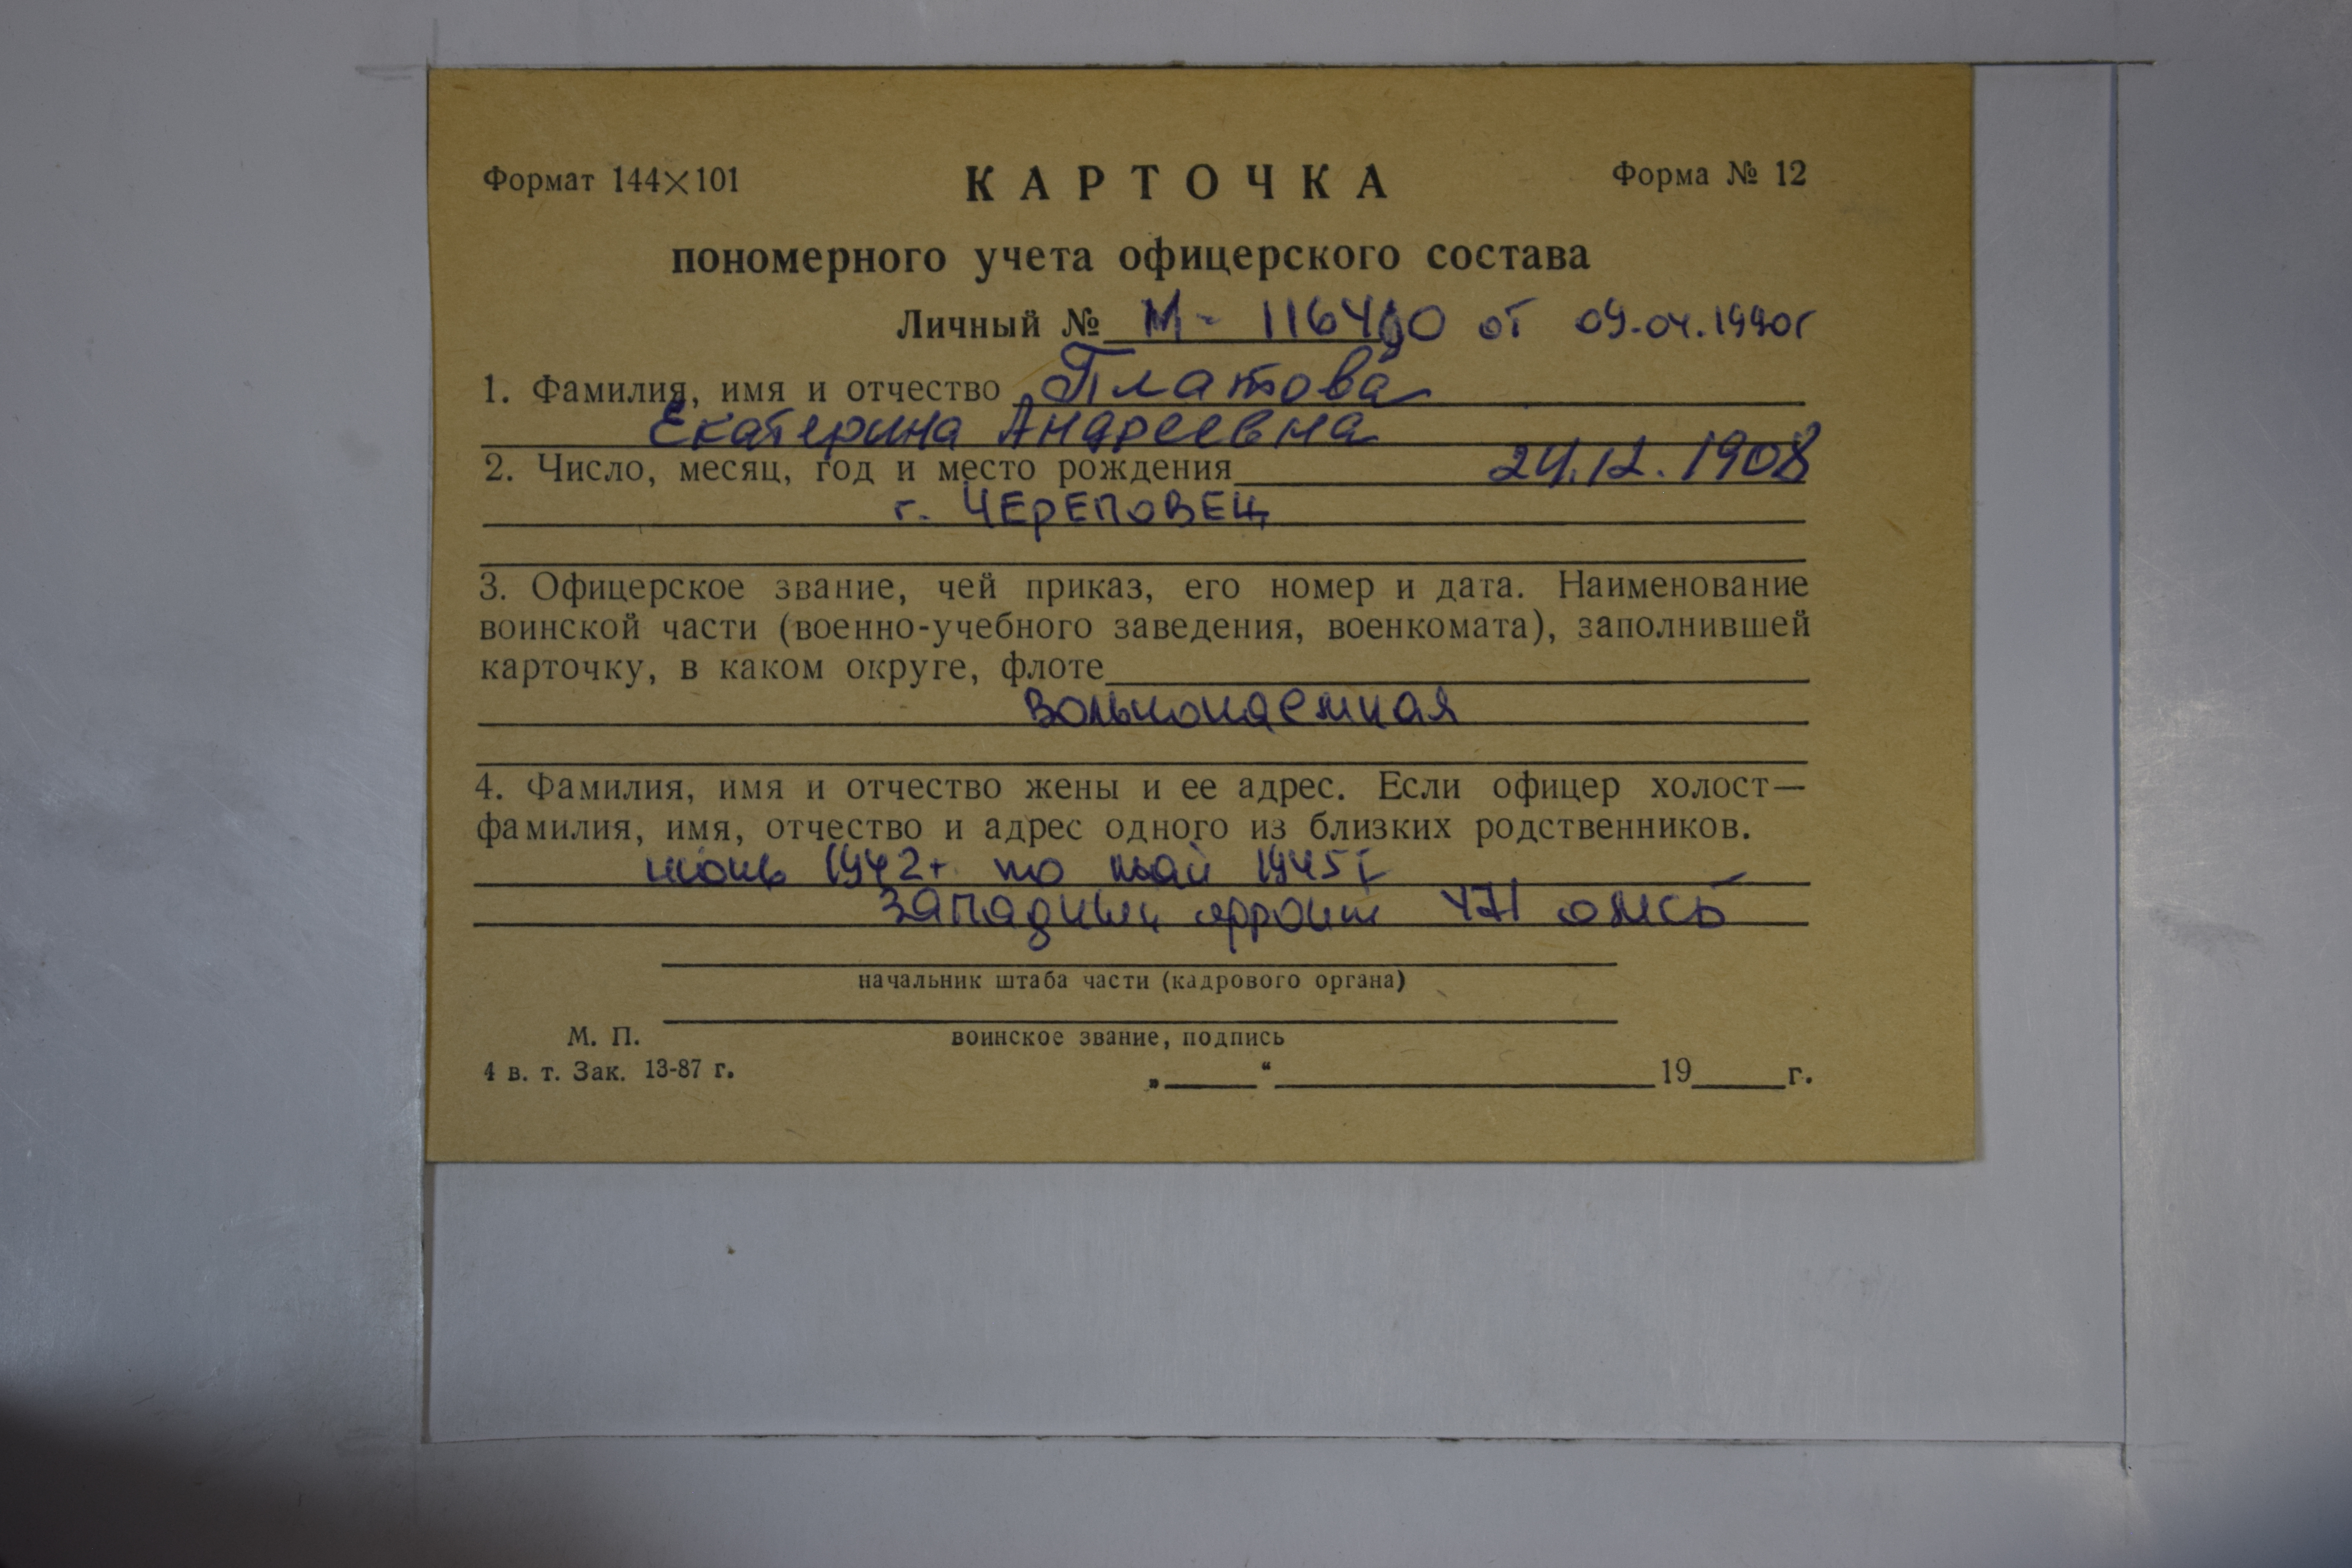 Формат 144×101
КАРТОЧКА
Форма № 12
пономерного учета офицерского состава
Личный № М- 116490 от 09.04.1990г
1. Фамилия, имя и отчество Платова
Екатерина Андреевна
2. Число, месяц, год и место рождения 24.12.1908
г. ЧЕРЕПОВЕЦ
3. Офицерское звание, чей приказ, его номер и дата. Наименование
воинской части (военно-учебного заведения, военкомата), заполнившей
карточку, в каком округе, флоте
вольнонаемная
4. Фамилия, имя и отчество жены и ее адрес. Если офицер холост—
фамилия, имя, отчество и адрес одного из близких родственников.
1942г. по май 1945г
Западный фронт 471 омсб
начальник штаба части (кадрового органа)
М. П.
воинское звание, подпись
4 в. т. Зак. 13-87 г.
„ “ 19 г.